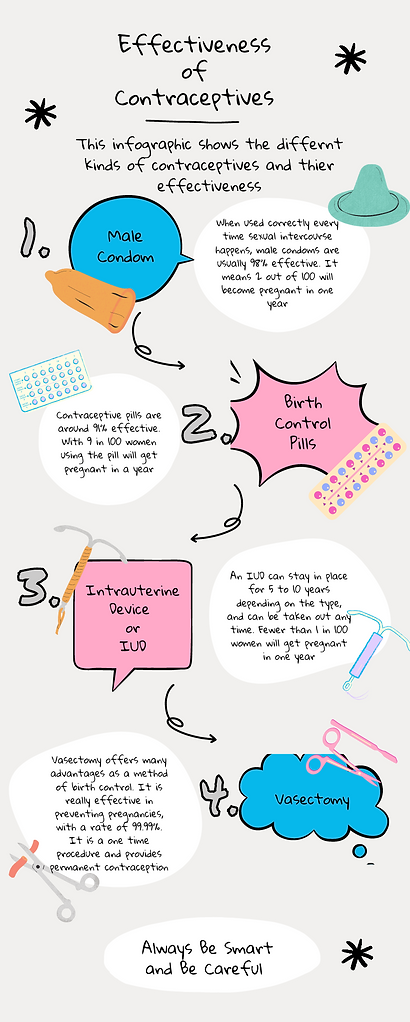 Effectiveness
of
Contraceptives
This infographic shows the differnt
kinds of contraceptives and thier
effectiveness
1.
Male
Condom
When used correctly every
time sexual intercourse
happens, male condoms are
usually 98% effective. It
means 2 out of 100 will
become pregnant in one
year
Contraceptive pills are
around 91% effective.
With 9 in 100 women
using the pill will get
pregnant in a year
2.
Birth
Control
Pills
3.
Intrauterine
Device
or
IUD
An IUD can stay in place
for 5 to 10 years
depending on the type,
and can be taken out any
time. Fewer than 1 in 100
women will get pregnant
in one year
Vasectomy offers many
advantages as a method
of birth control. It is
really effective in
preventing pregnancies,
with a rate of 99.99%.
It is a one time
procedure and provides
permanent contraception
4.
Vasectomy
Always Be Smart
and Be Careful